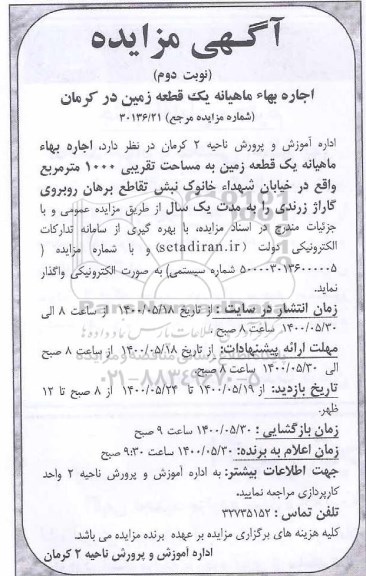 آگهی مزایده
(نوبت دوم)
اجاره بهاء ماهیانه یک قطعه زمین در کرمان
(شماره مزایده مرجع) ۳۰۱۳۶/۲۱
اداره آموزش و پرورش ناحیه ۲ کرمان در نظر دارد، اجاره بهاء
ماهیانه یک قطعه زمین به مساحت تقریبی ۱۰۰۰ مترمربع
واقع در خیابان شهداء خانوک نبش تقاطع برهان روبروی
گاراژ زرندی را به مدت یک سال از طریق مزایده عمومی و با
جزئیات مندرج در اسناد مزایده، با بهره گیری از سامانه تدارکات
الکترونیکی دولت (setadiran.ir) و با شماره مزایده (
۵۰۰۰۰۳۰۱۳۶۰۰۰۰۰۵ شماره سیستمی) به صورت الکترونیکی واگذار
نماید.
زمان انتشار در سایت : از تاریخ ۱۴۰۰/۰۵/۱۸ از ساعت ۸ الی
۱۴۰۰/۰۵/۳۰ ساعت ۸ صبح .
مهلت ارائه پیشنهادات: از تاریخ ۱۴۰۰/۰۵/۱۸ از ساعت ۸ صبح
الی ۱۴۰۰/۰۵/۳۰ ساعت ۸ صبح.
تاریخ بازدید: از ۱۴۰۰/۰۵/۱۹ تا ۱۴۰۰/۰۵/۲۴ از ۸ صبح تا ۱۲
ظهر.
زمان بازگشایی : ۱۴۰۰/۰۵/۳۰ ساعت ۹ صبح
زمان اعلام به برنده: ۱۴۰۰/۰۵/۳۰ ساعت ۹:۳۰ صبح
جهت اطلاعات بیشتر: به اداره آموزش و پرورش ناحیه ۲ واحد
کارپردازی مراجعه نمایید.
تلفن تماس : ۳۲۷۳۵۱۵۲
کلیه هزینه های برگزاری مزایده بر عهده برنده مزایده می باشد.
اداره آموزش و پرورش ناحیه ۲ کرمان